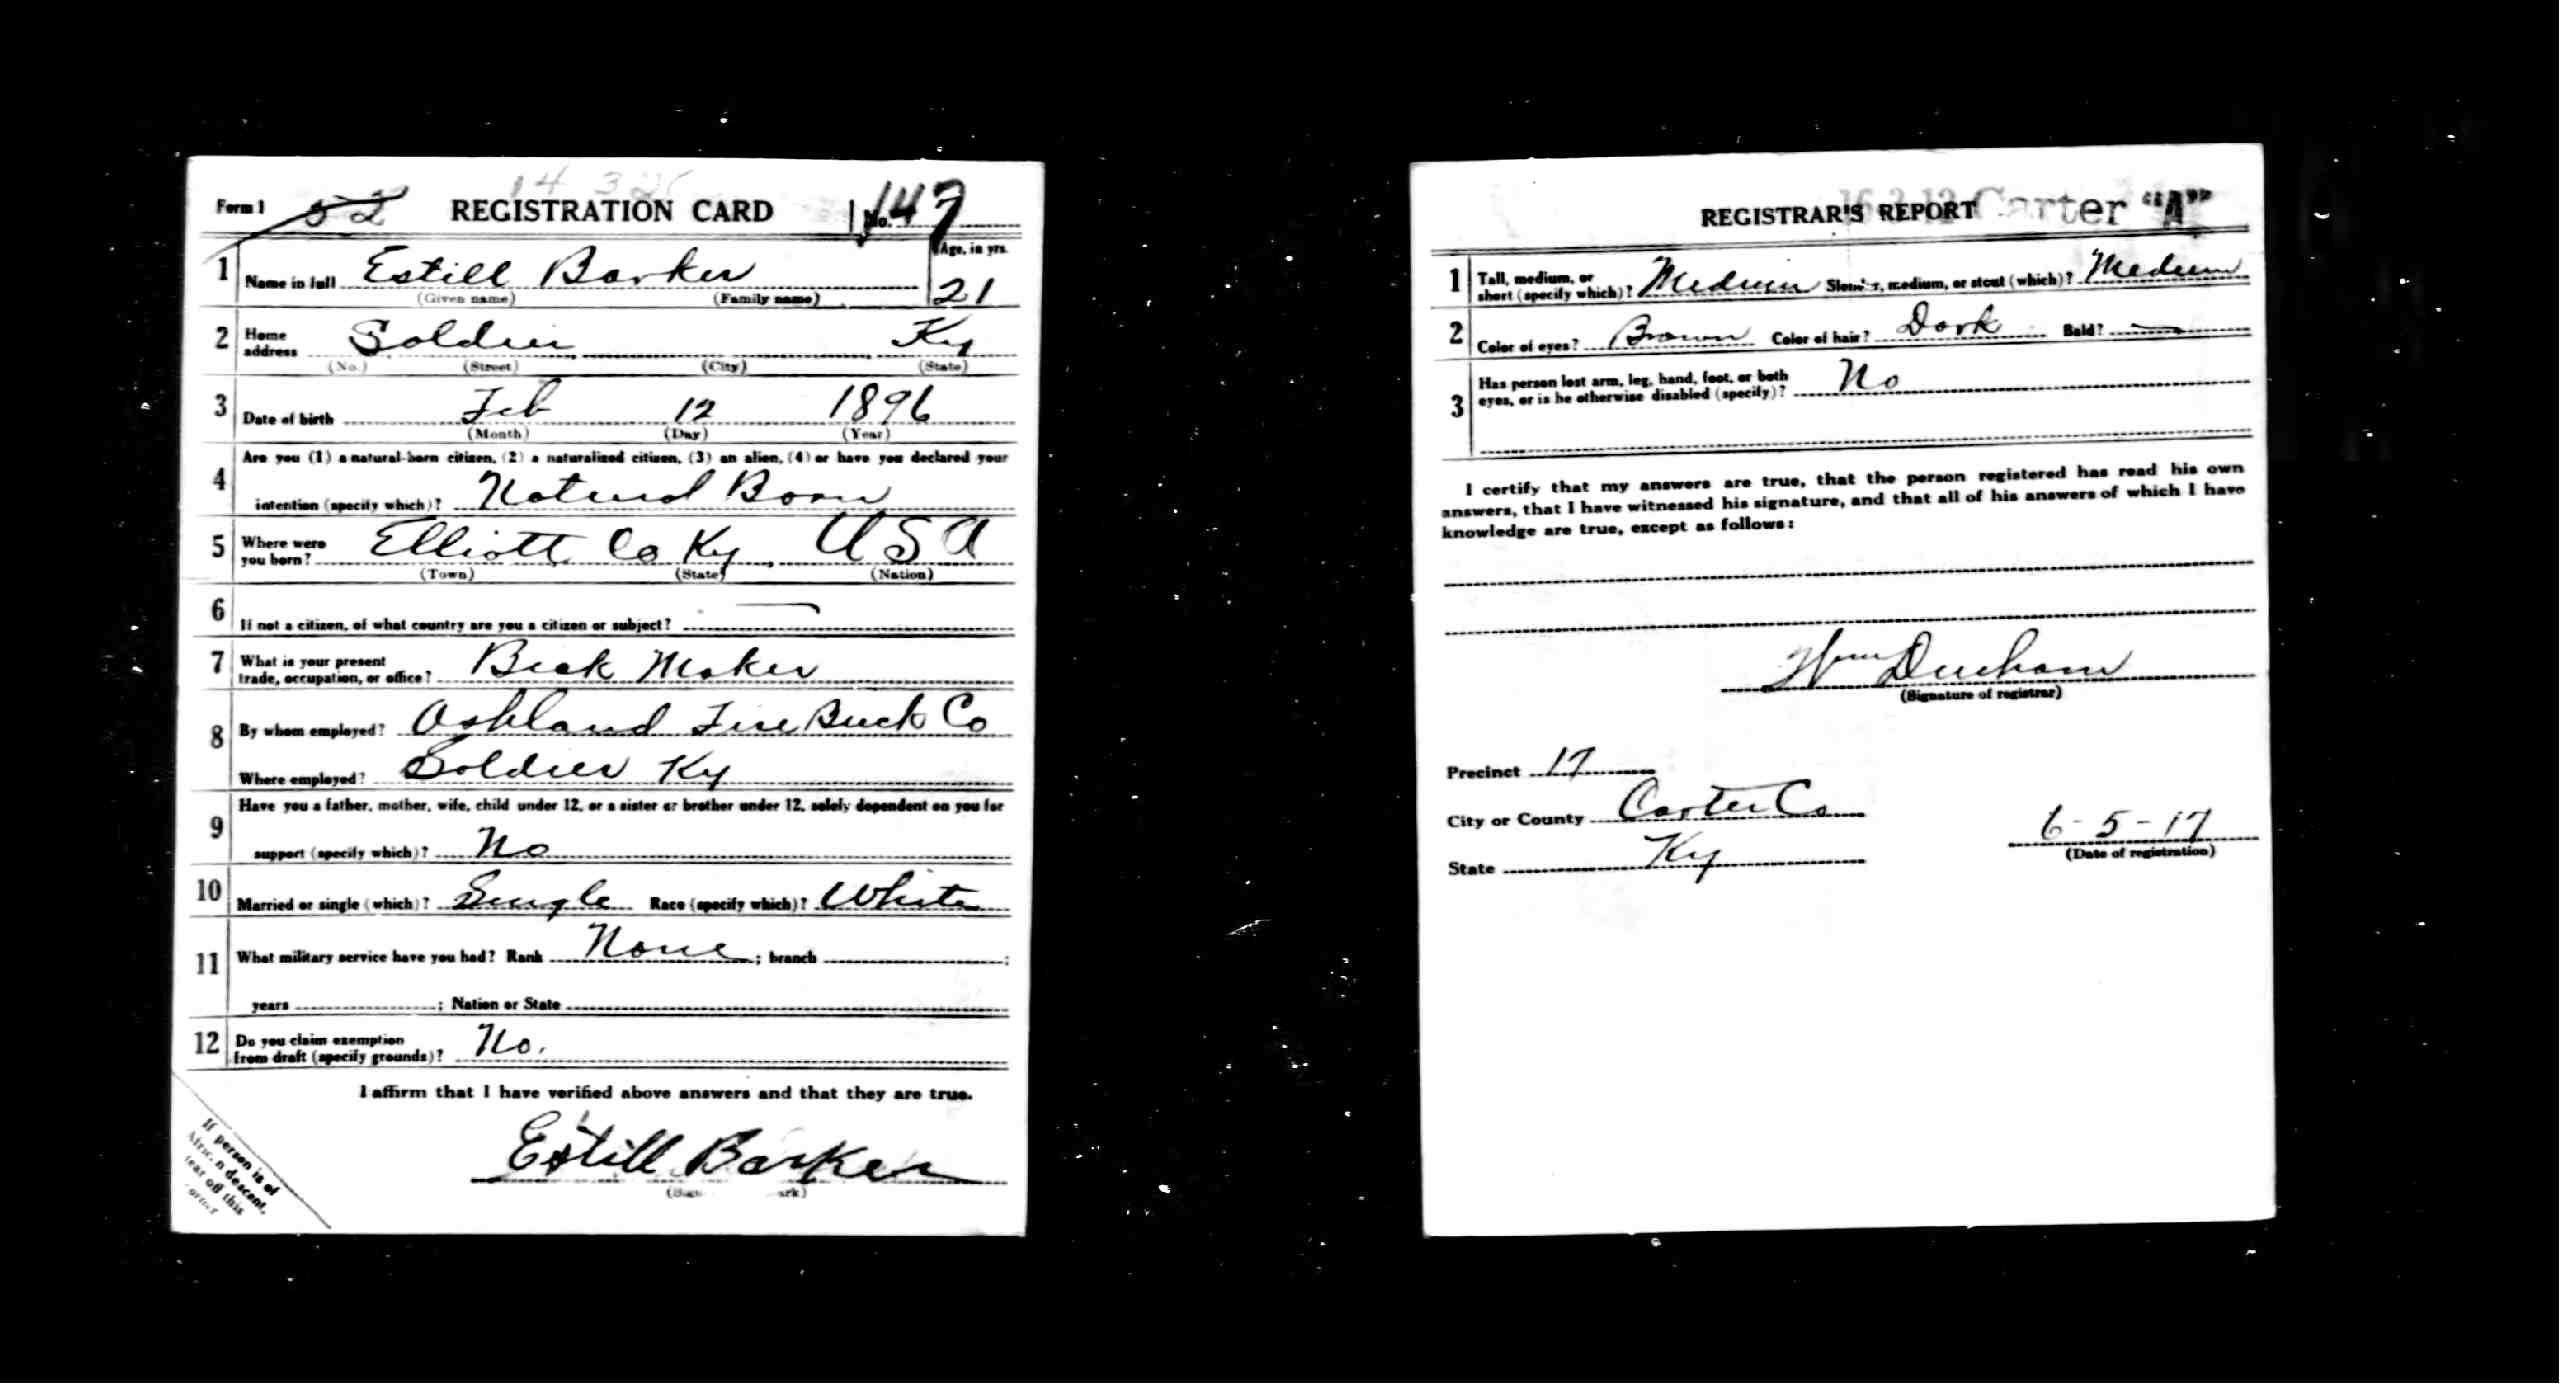 Form 1 52 REGISTRATION CARD No. 147
1 Name in full Estill Barker Age, in yrs. 21
(Given name) (Family name)
2 Home address Soldier Ky
(No.) (Street) (City) (State)
3 Date of birth Feb 12 1896
(Month) (Day) (Year)
4 Are you (1) a natural-born citizen, (2) a naturalized citizen, (3) an alien, (4) or have you declared your
intention (specify which)? Natural Born
5 Where were you born? Elliott Co Ky USA
(Town) (State) (Nation)
6 If not a citizen, of what country are you a citizen or subject? —
7 What is your present trade, occupation, or office? Brick Maker
8 By whom employed? Ashland Fire Brick Co
Where employed? Soldier Ky
9 Have you a father, mother, wife, child under 12, or a sister or brother under 12, solely dependent on you for
support (specify which)? No
10 Married or single (which)? Single Race (specify which)? White
11 What military service have you had? Rank None; branch ;
years ; Nation or State
12 Do you claim exemption from draft (specify grounds)? No.
I affirm that I have verified above answers and that they are true.
Estill Barker
If person is of
African descent,
tear off this
corner
REGISTRAR'S REPORT Carter "A"
1 Tall, medium, or short (specify which)? Medium Slender, medium, or stout (which)? Medium
2 Color of eyes? Brown Color of hair? Dark Bald? —
3 Has person lost arm, leg, hand, foot, or both
eyes, or is he otherwise disabled (specify)? No
I certify that my answers are true, that the person registered has read his own
answers, that I have witnessed his signature, and that all of his answers of which I have
knowledge are true, except as follows:
Wm Durham
(Signature of registrar)
Precinct 17
City or County Carter Co
State Ky
6-5-17
(Date of registration)